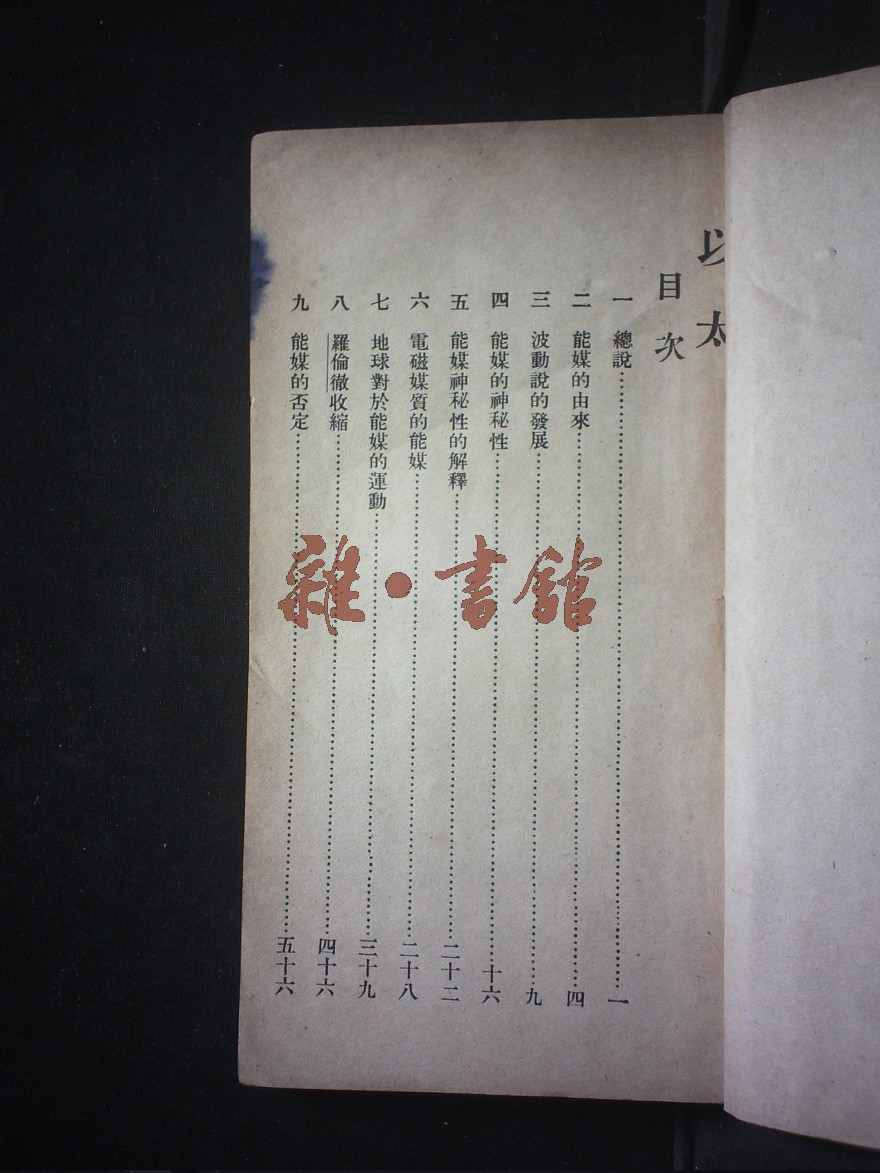 以太
目次
一 總說……一
二 能媒的由來……四
三 波動說的發展……九
四 能媒的神秘性……十六
五 能媒神秘性的解釋……二十二
六 電磁媒質的能媒……二十八
七 地球對於能媒的運動……三十九
八 羅倫徹收縮……四十六
九 能媒的否定……五十六
雜·書館